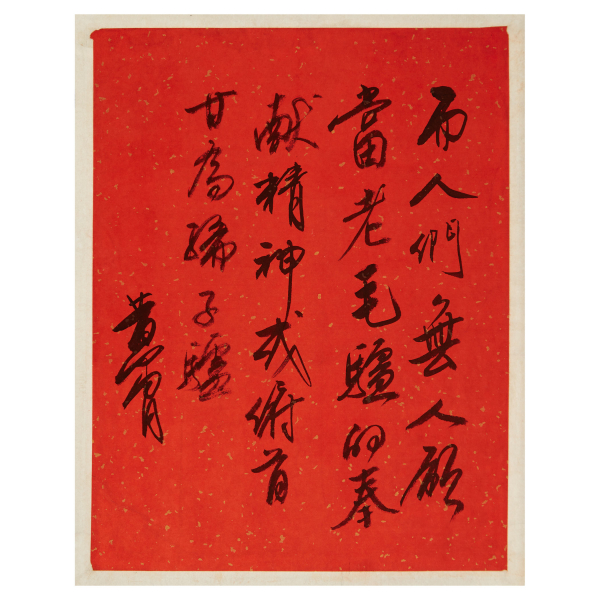 而人們無人願
當老毛驢的奉
献精神我俯首
甘為孺子驢
黃胄